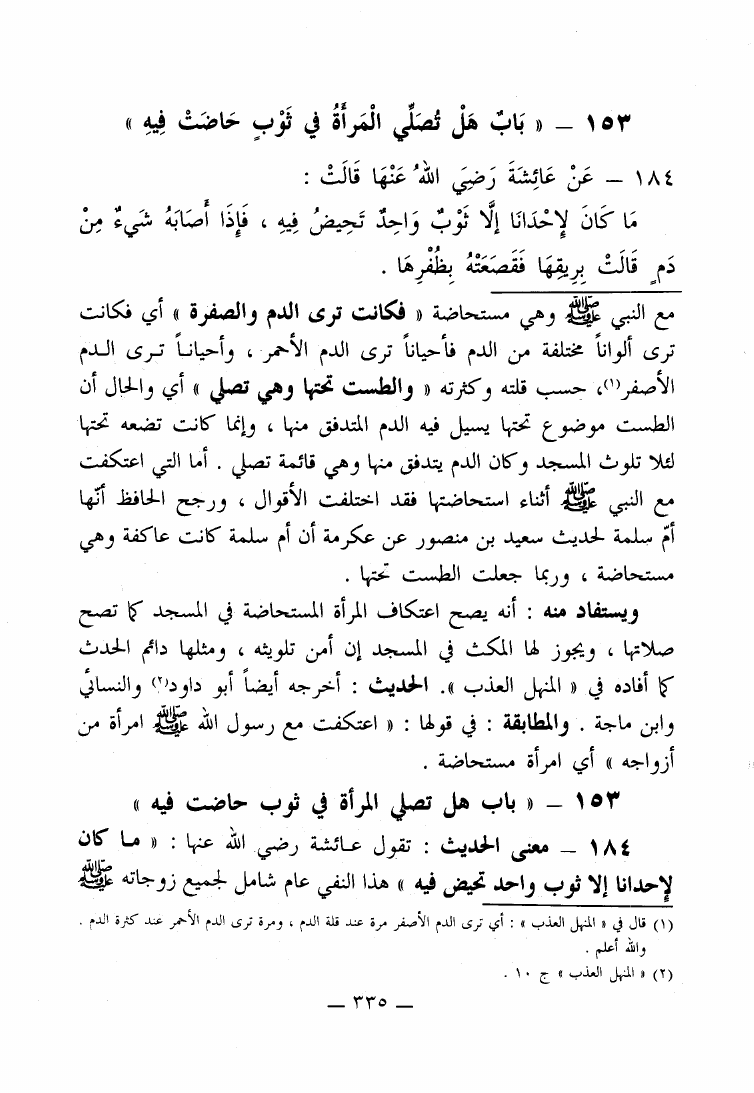 ١٥٣ – « بَابٌ هَلْ تُصَلِّي الْمَرأَةُ في ثَوْبٍ حَاضَتْ فِيهِ »
١٨٤ – عَنْ عَائِشَةَ رَضِيَ اللهُ عَنْهَا قَالَتْ :
مَا كَانَ لِإِحْدَانَا إلَّا ثَوْبٌ وَاحِدٌ تَحِيضُ فِيهِ ، فَإِذَا أَصَابَهُ شَيءٌ مِنْ
دَمٍ قَالَتْ بِرِيقِهَا فَقَصَعَتْهُ بِظُفْرِهَا .
مع النبي ﷺ وهي مستحاضة « فكانت ترى الدم والصفرة » أي فكانت
ترى ألواناً مختلفة من الدم فأحياناً ترى الدم الأحمر ، وأحيانـاً تـرى الـدم
الأصفر(١)، حسب قلته وكثرته « والطست تحتها وهي تصلي » أي والحال أن
الطست موضوع تحتها يسيل فيه الدم المتدفق منها ، وإنما كانت تضعه تحتها
لئلا تلوث المسجد وكان الدم يتدفق منها وهي قائمة تصلي . أما التي اعتكفت
مع النبي ﷺ أثناء استحاضتها فقد اختلفت الأقوال ، ورجح الحافظ أنّها
أمّ سلمة لحديث سعيد بن منصور عن عكرمة أن أم سلمة كانت عاكفة وهي
مستحاضة ، وربما جعلت الطست تحتها .
ويستفاد منه : أنه يصح اعتكاف المرأة المستحاضة في المسجد كما تصح
صلاتها ، ويجوز لها المكث في المسجد إن أمن تلويثه ، ومثلها دائم الحدث
كما أفاده في « المنهل العذب ». الحديث : أخرجه أيضاً أبو داود(٢) والنسائي
وابن ماجة . والمطابقة : في قولها : « اعتكفت مع رسول الله ﷺ امرأة من
أزواجه » أي امرأة مستحاضة .
١٥٣ – « باب هل تصلي المرأة في ثوب حاضت فيه »
١٨٤ – معنى الحديث : تقول عـائشة رضي الله عنها : « مـا كان
لإحدانا إلا ثوب واحد تحيض فيه » هذا النفي عام شامل لجميع زوجاته ﷺ
(١) قال في « المنهل العذب » : أي ترى الدم الأصفر مرة عند قلة الدم ، ومرة ترى الدم الأحمر عند كثرة الدم .
والله أعلم .
(٢) « المنهل العذب » ج ١٠ .
– ٣٣٥ –